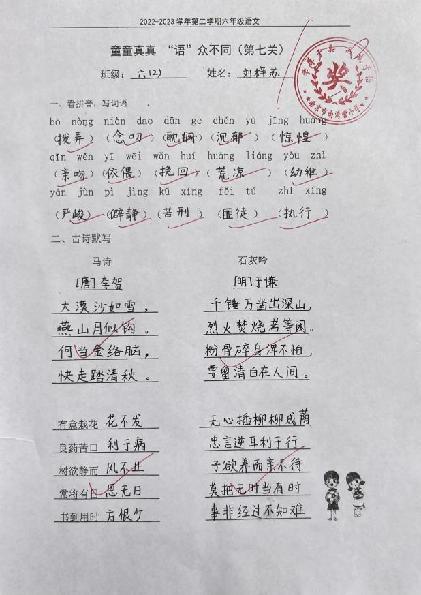 2022-2023学年第二学期六年级语文
童童真真 “语”众不同（第七关）
班级：六(2) 姓名：
一、看拼音，写词语
bō nòng niàn dao dān ge chén yù jīng huáng
(拨弄) (念叨) (耽搁) (沉郁) (惊惶)
qīn wěn yī wēi wǎn huí huāng liáng yòu zhì
(亲吻) (依偎) (挽回) (荒凉) (幼稚)
yán jùn pì jìng kǔ xíng fěi tú zhí xíng
(严峻) (僻静) (苦刑) (匪徒) (执行)
二、古诗默写
马诗 石灰吟
[唐]李贺 [明]于谦
大漠沙如雪， 千锤万凿出深山，
燕山月似钩。 烈火焚烧若等闲。
何当金络脑， 粉骨碎身浑不怕，
快走踏清秋。 要留清白在人间。
有意栽花 花不发 无心插柳柳成荫
良药苦口 利于病 忠言逆耳利于行
树欲静而 风不止 子欲养而亲不待
常将有日 思无日 莫把无时当有时
书到用时 方恨少 事非经过不知难
奖